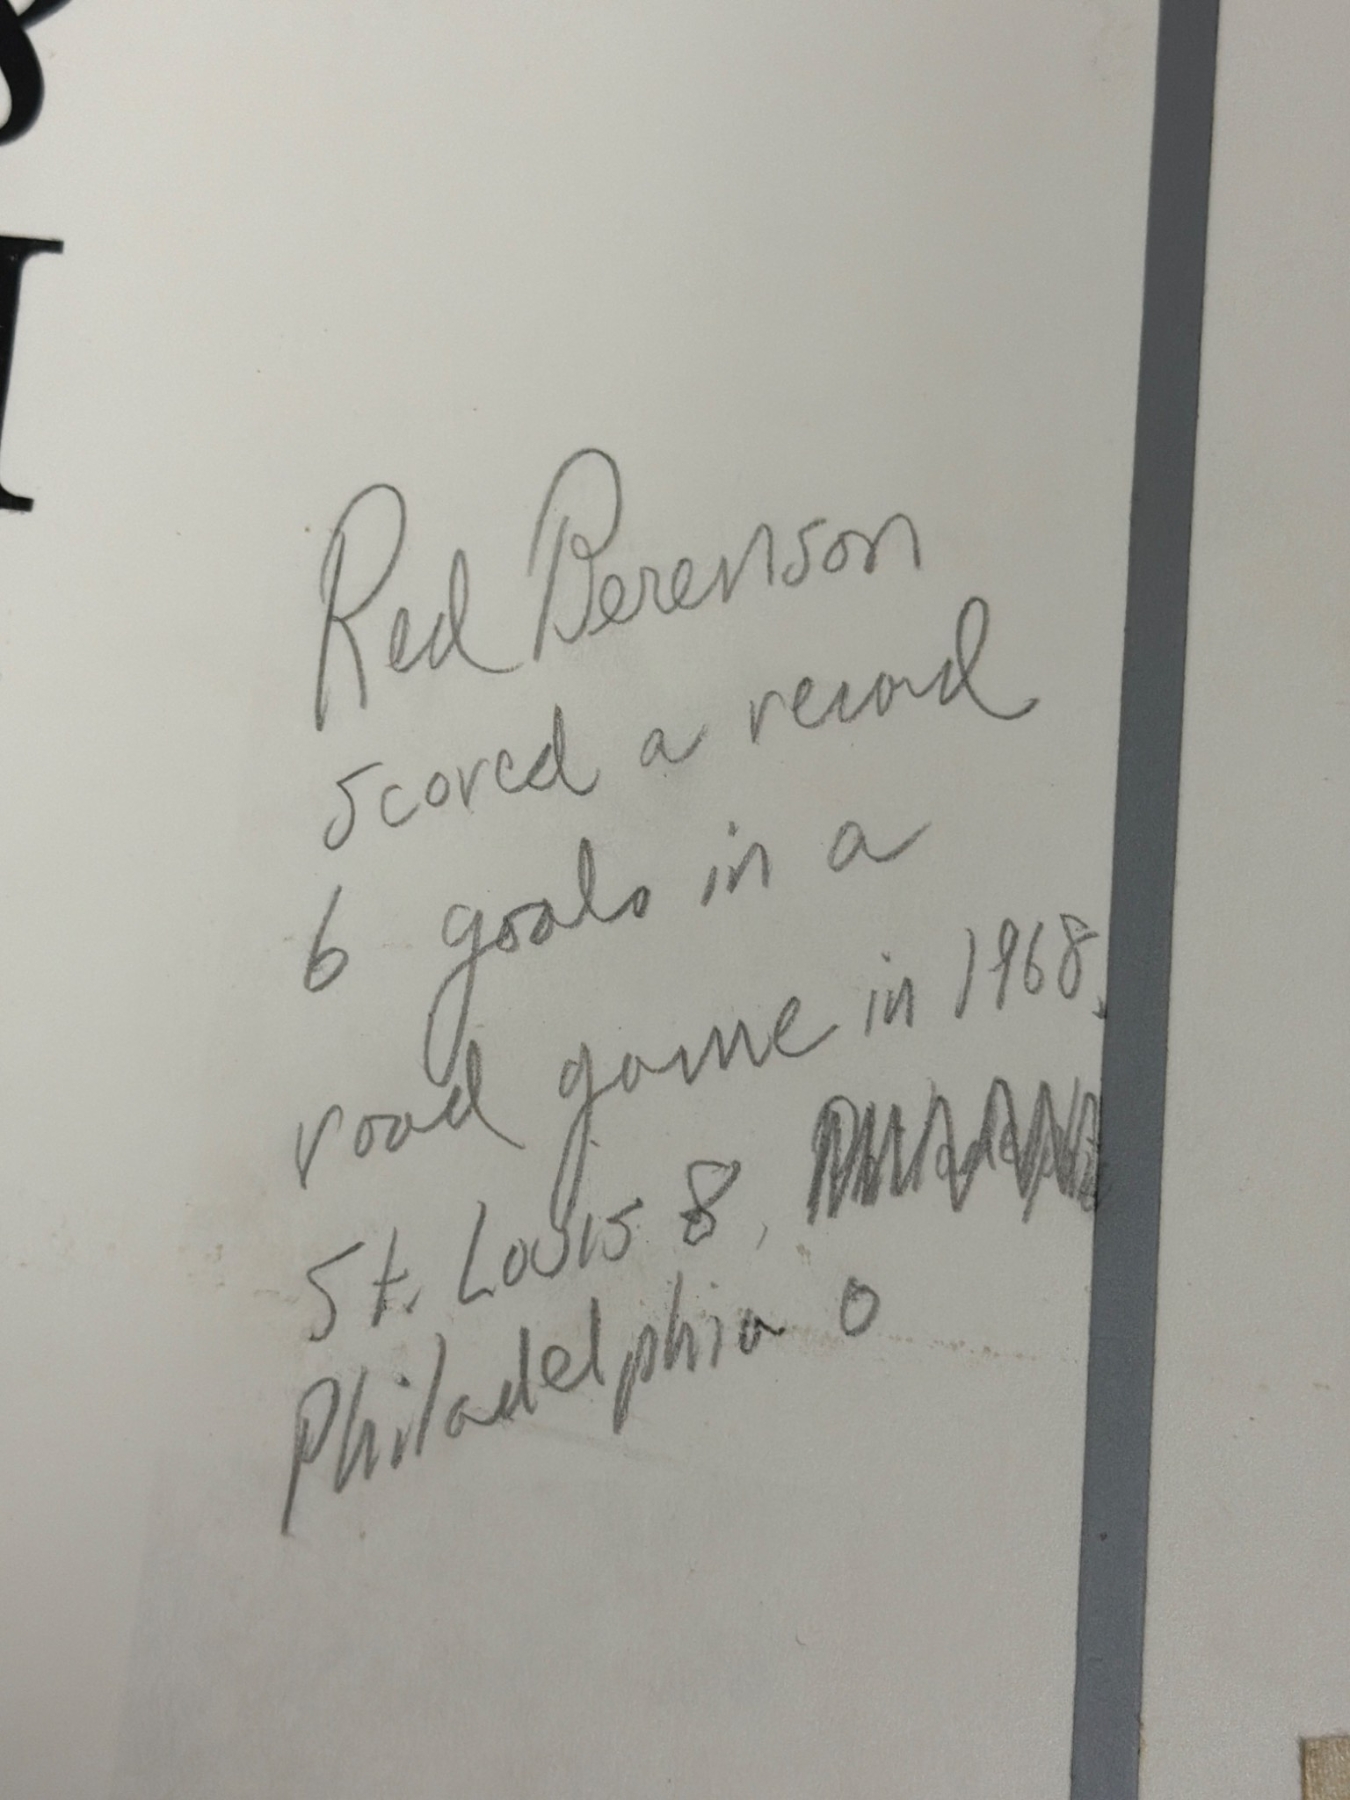 Red Berenson
scored a record
6 goals in a
road game in 1968.
St. Louis 8,
Philadelphia 0